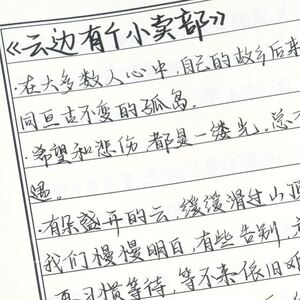 《云边有个小卖部》
·在大多数人心中,自己的故乡后来
同亘古不变的孤岛.
·希望和悲伤 都是一缕光,总
遇.
·有朵盛开的云,缓缓滑过山顶
我们慢慢明白,有些告别,
再习惯等待,等不来依旧